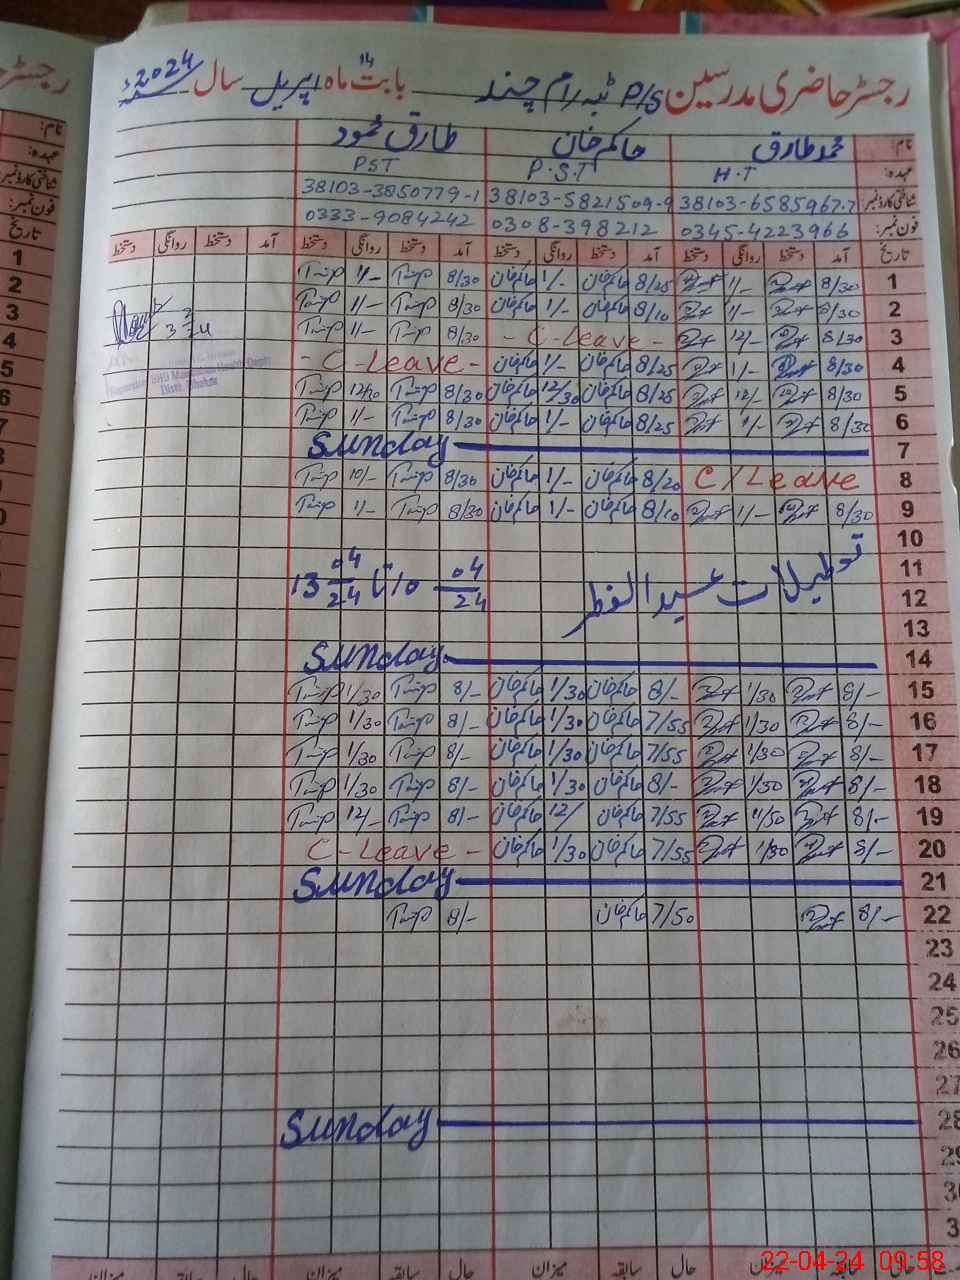 رجسٹر حاضری مدرسین P/S ٹبہ رام چند بابت ماہ اپریل سال 2024ء
نام: محمد طارق حاکم خان طارق محمود
عہدہ: H.T P.S.T PST
شناختی کارڈ نمبر 38103-6585967-7 38103-5821509-9 38103-3850779-1
فون نمبر: 0345-4223966 0308-398212 0333-9084242
تاریخ آمد دستخط روانگی دستخط آمد دستخط روانگی دستخط آمد دستخط روانگی دستخط آمد دستخط روانگی دستخط
1 8/30 1/- 8/25 حاکم خان 1/- حاکم خان 8/30 1/-
2 8/30 1/- 8/10 حاکم خان 1/- حاکم خان 8/30 1/-
3 8/30 12/- - C-Leave - 8/30 1/-
4 8/30 1/- 8/25 حاکم خان 1/- حاکم خان - C-Leave -
5 8/30 12/- 8/25 حاکم خان 12/30 حاکم خان 8/30
6 8/30 1/- 8/25 حاکم خان 1/- حاکم خان 8/30 1/-
7 Sunday
8 C/Leave 8/20 حاکم خان 1/- حاکم خان 8/30 10/-
9 8/30 1/- 8/10 حاکم خان 1/- حاکم خان 8/30 1/-
10
11 تعطیلات عید الفطر 10-04/24 تا 13 04/24
12
13
14 Sunday
15 8/- 1/30 8/- حاکم خان 1/30 حاکم خان 8/- 1/30
16 8/- 1/30 7/55 حاکم خان 1/30 حاکم خان 8/- 1/30
17 8/- 1/30 7/55 حاکم خان 1/30 حاکم خان 8/- 1/30
18 8/- 1/30 8/- حاکم خان 1/30 حاکم خان 8/- 1/30
19 8/- 11/50 7/55 حاکم خان 12/ حاکم خان 8/- 12/-
20 8/- 1/30 7/55 حاکم خان 1/30 حاکم خان C-Leave -
21 Sunday
22 8/- 7/50 حاکم خان 8/-
23
24
25
26
27
28 Sunday
29
حال سابقہ میزان حال سابقہ میزان
22-04-24 09:58